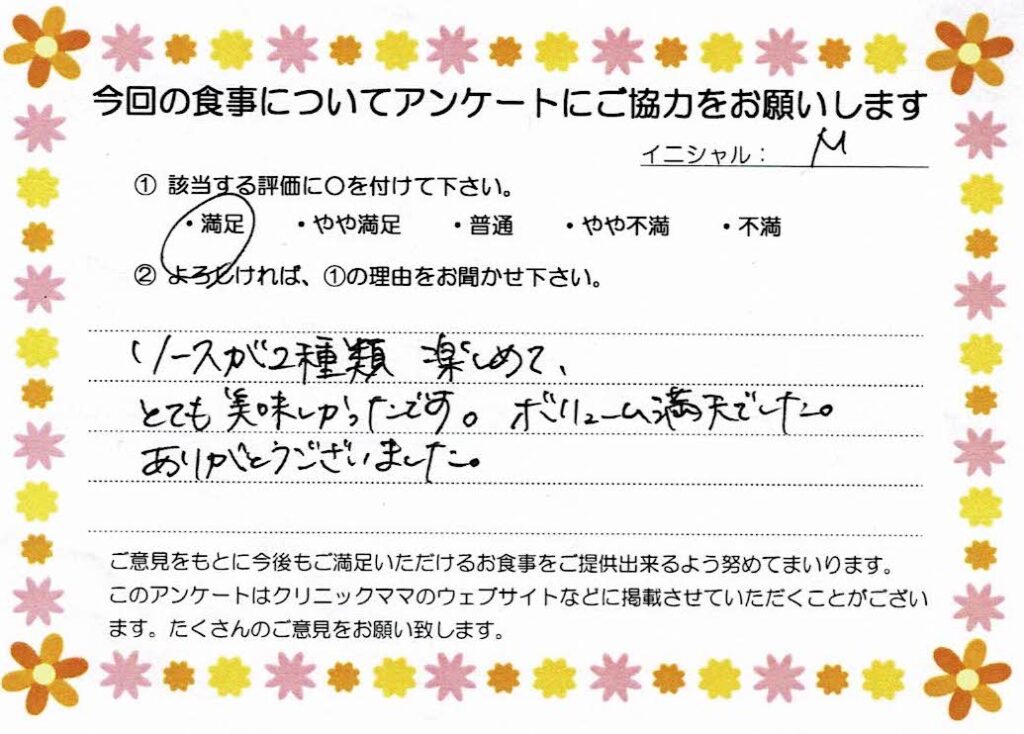 今回の食事についてアンケートにご協力をお願いします
イニシャル： M
① 該当する評価に〇を付けて下さい。
・満足 ・やや満足 ・普通 ・やや不満 ・不満
② よろしければ、①の理由をお聞かせ下さい。
ソースが2種類 楽しめて、
とても美味しかったです。ボリューム満天でした。
ありがとうございました。
ご意見をもとに今後もご満足いただけるお食事をご提供出来るよう努めてまいります。
このアンケートはクリニックママのウェブサイトなどに掲載させていただくことがござい
ます。たくさんのご意見をお願い致します。